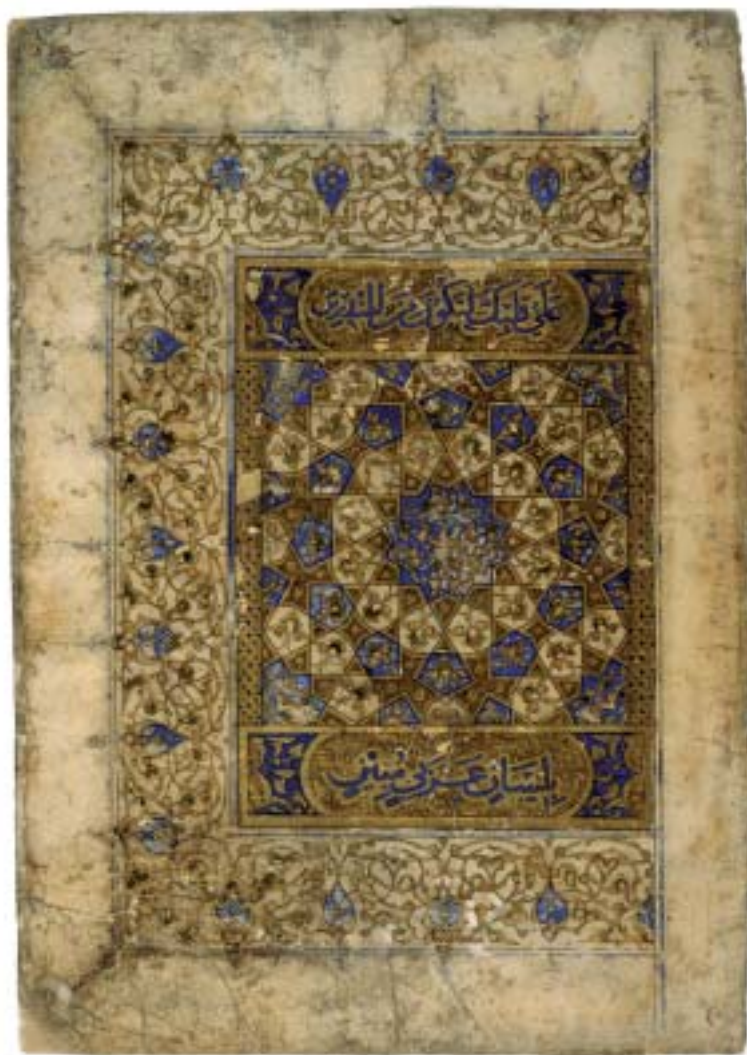 على قلبك لتكون من المنذرين
بلسان عربي مبين